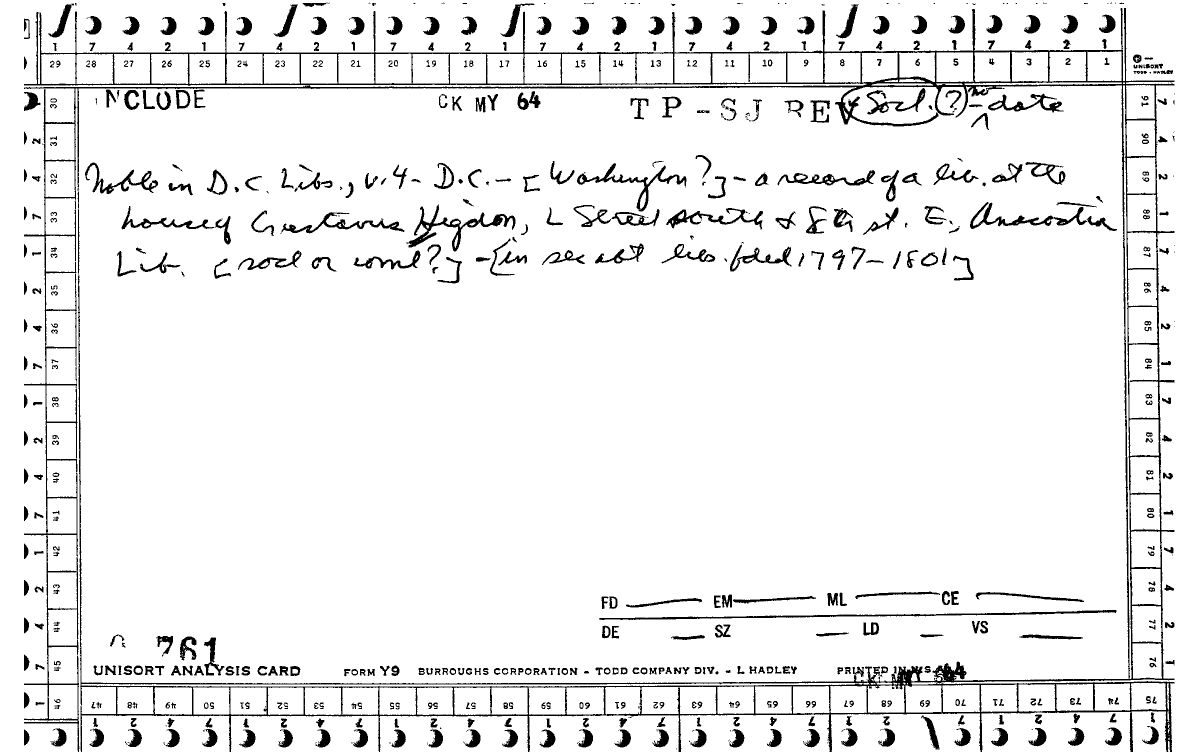 7 4 2 1 7 4 2 1 7 4 2 1 7 4 2 1 7 4 2 1 7 4 2 1 7 4 2 1
29 28 27 26 25 24 23 22 21 20 19 18 17 16 15 14 13 12 11 10 9 8 7 6 5 4 3 2 1
UNISORT
TODD - HADLEY
INCLUDE CK MY 64 TP-SJ REV Socl. (?) - no date
Noble in D.C. Libs., v.4 - D.C. - [Washington?] - a record of a lib. at the
house of Gustavus Higdon, L Street south & 8th st. E., Anacostia
Lib. [socl or coml?] - [in sec abt libs. fded 1797-1801]
30 31 32 33 34 35 36 37 38 39 40 41 42 43 44 45 46
91 90 89 88 87 86 85 84 83 82 81 80 79 78 77 76 75
FD EM ML CE
DE SZ LD VS
761
UNISORT ANALYSIS CARD FORM Y9 BURROUGHS CORPORATION - TODD COMPANY DIV. - L HADLEY PRINTED IN U.S.
CK MY 64
47 48 49 50 51 52 53 54 55 56 57 58 59 60 61 62 63 64 65 66 67 68 69 70 71 72 73 74